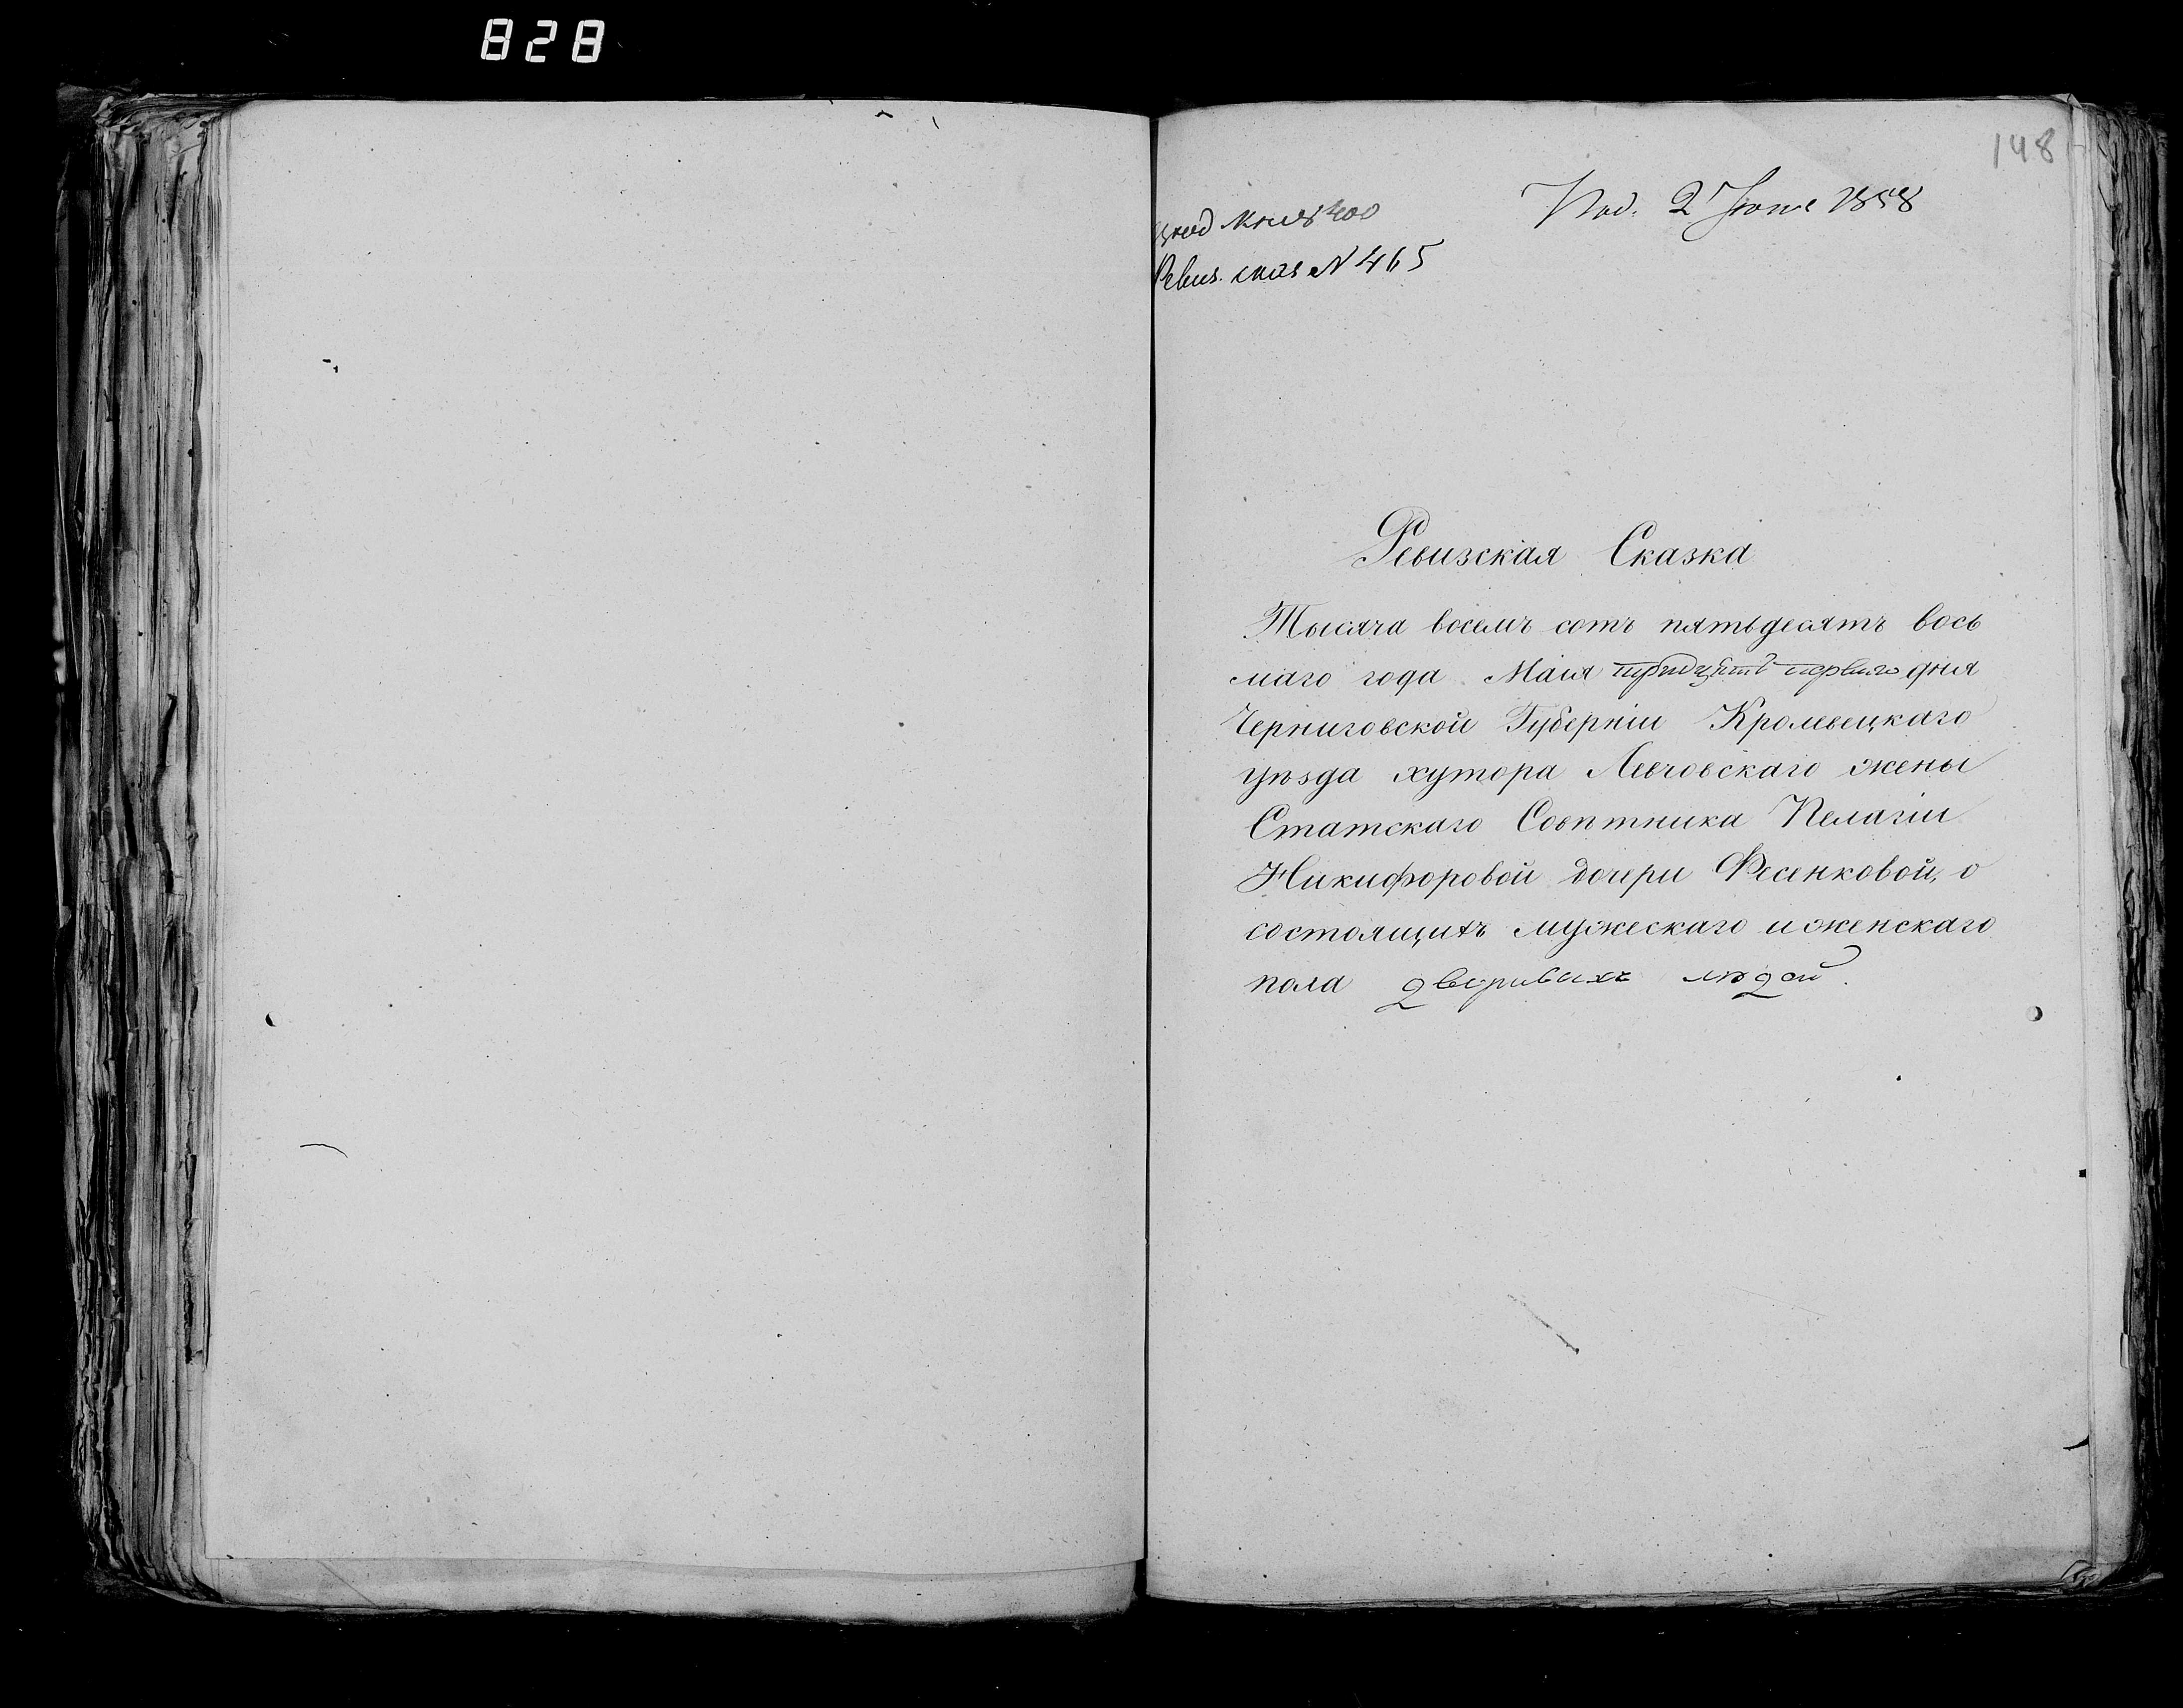 828
148
Под. 2 Іюня 1858
Ревиз. сказ № 465
Ревизская Сказка
Тысяча восемь сотъ пятьдесятъ вось
маго года Маія тридцать перваго дня
Черниговской Губерніи Кролевецкаго
уѣзда хутора Левчовскаго жены
Статскаго Совѣтника Пелагіи
Никифоровой дочери Фесенковой, о
состоящихъ мужескаго и женскаго
пола дворовыхъ людей.